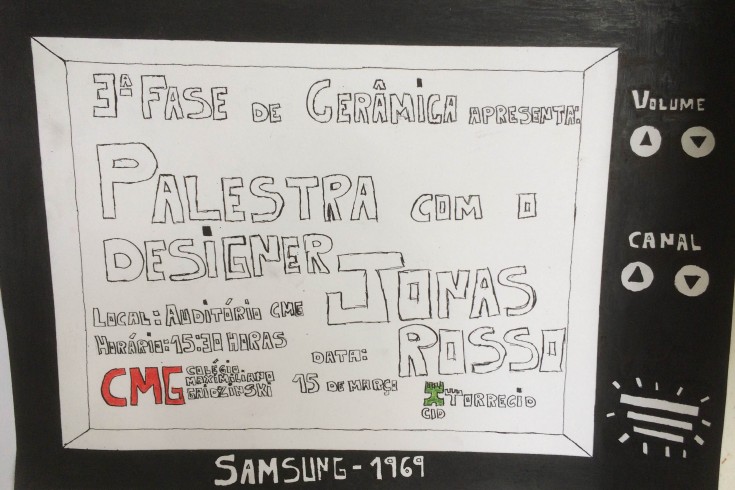 3ª FASE DE CERÂMICA APRESENTA:
PALESTRA COM O
DESIGNER JONAS
ROSSO
LOCAL: AUDITÓRIO CME
HORÁRIO: 15:30 HORAS
DATA:
15 DE MARÇO
CMG COLÉGIO
MAXIMILIANO
GAIDZINSKI
CID
TORRECID
VOLUME
CANAL
SAMSUNG - 1969